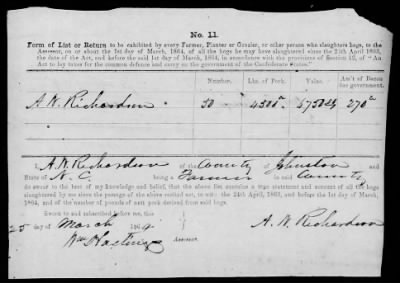 No. 11.
Form of List or Return to be exhibited by every Farmer, Planter or Grazier, or other person who slaughters hogs, to the
Assessor, on or about the 1st day of March, 1864, of all the hogs he may have slaughtered since the 24th April 1863,
the date of the Act, and before the said 1st of March, 1864, in accordance with the provisions of Section 12, of "An
Act to lay taxes for the common defence and carry on the government of the Confederate States."
Number. Lbs. of Pork. Value. Am't of Bacon for government.
A. W. Richardson 30 4500 270
A. W. Richardson of the County of Johnston and
State of N. C. being a Farmer in said County
do swear to the best of my knowledge and belief, that the above list contains a true statement and account of all the hogs
slaughtered by me during the year, to wit: since the 24th April, 1863, and before the 1st day of March,
1864, and of the number of pounds of nett pork derived from said hogs.
Sworn to and subscribed before me, this
25 day of March 1864 A. W. Richardson
Wm Hastings Assessor.